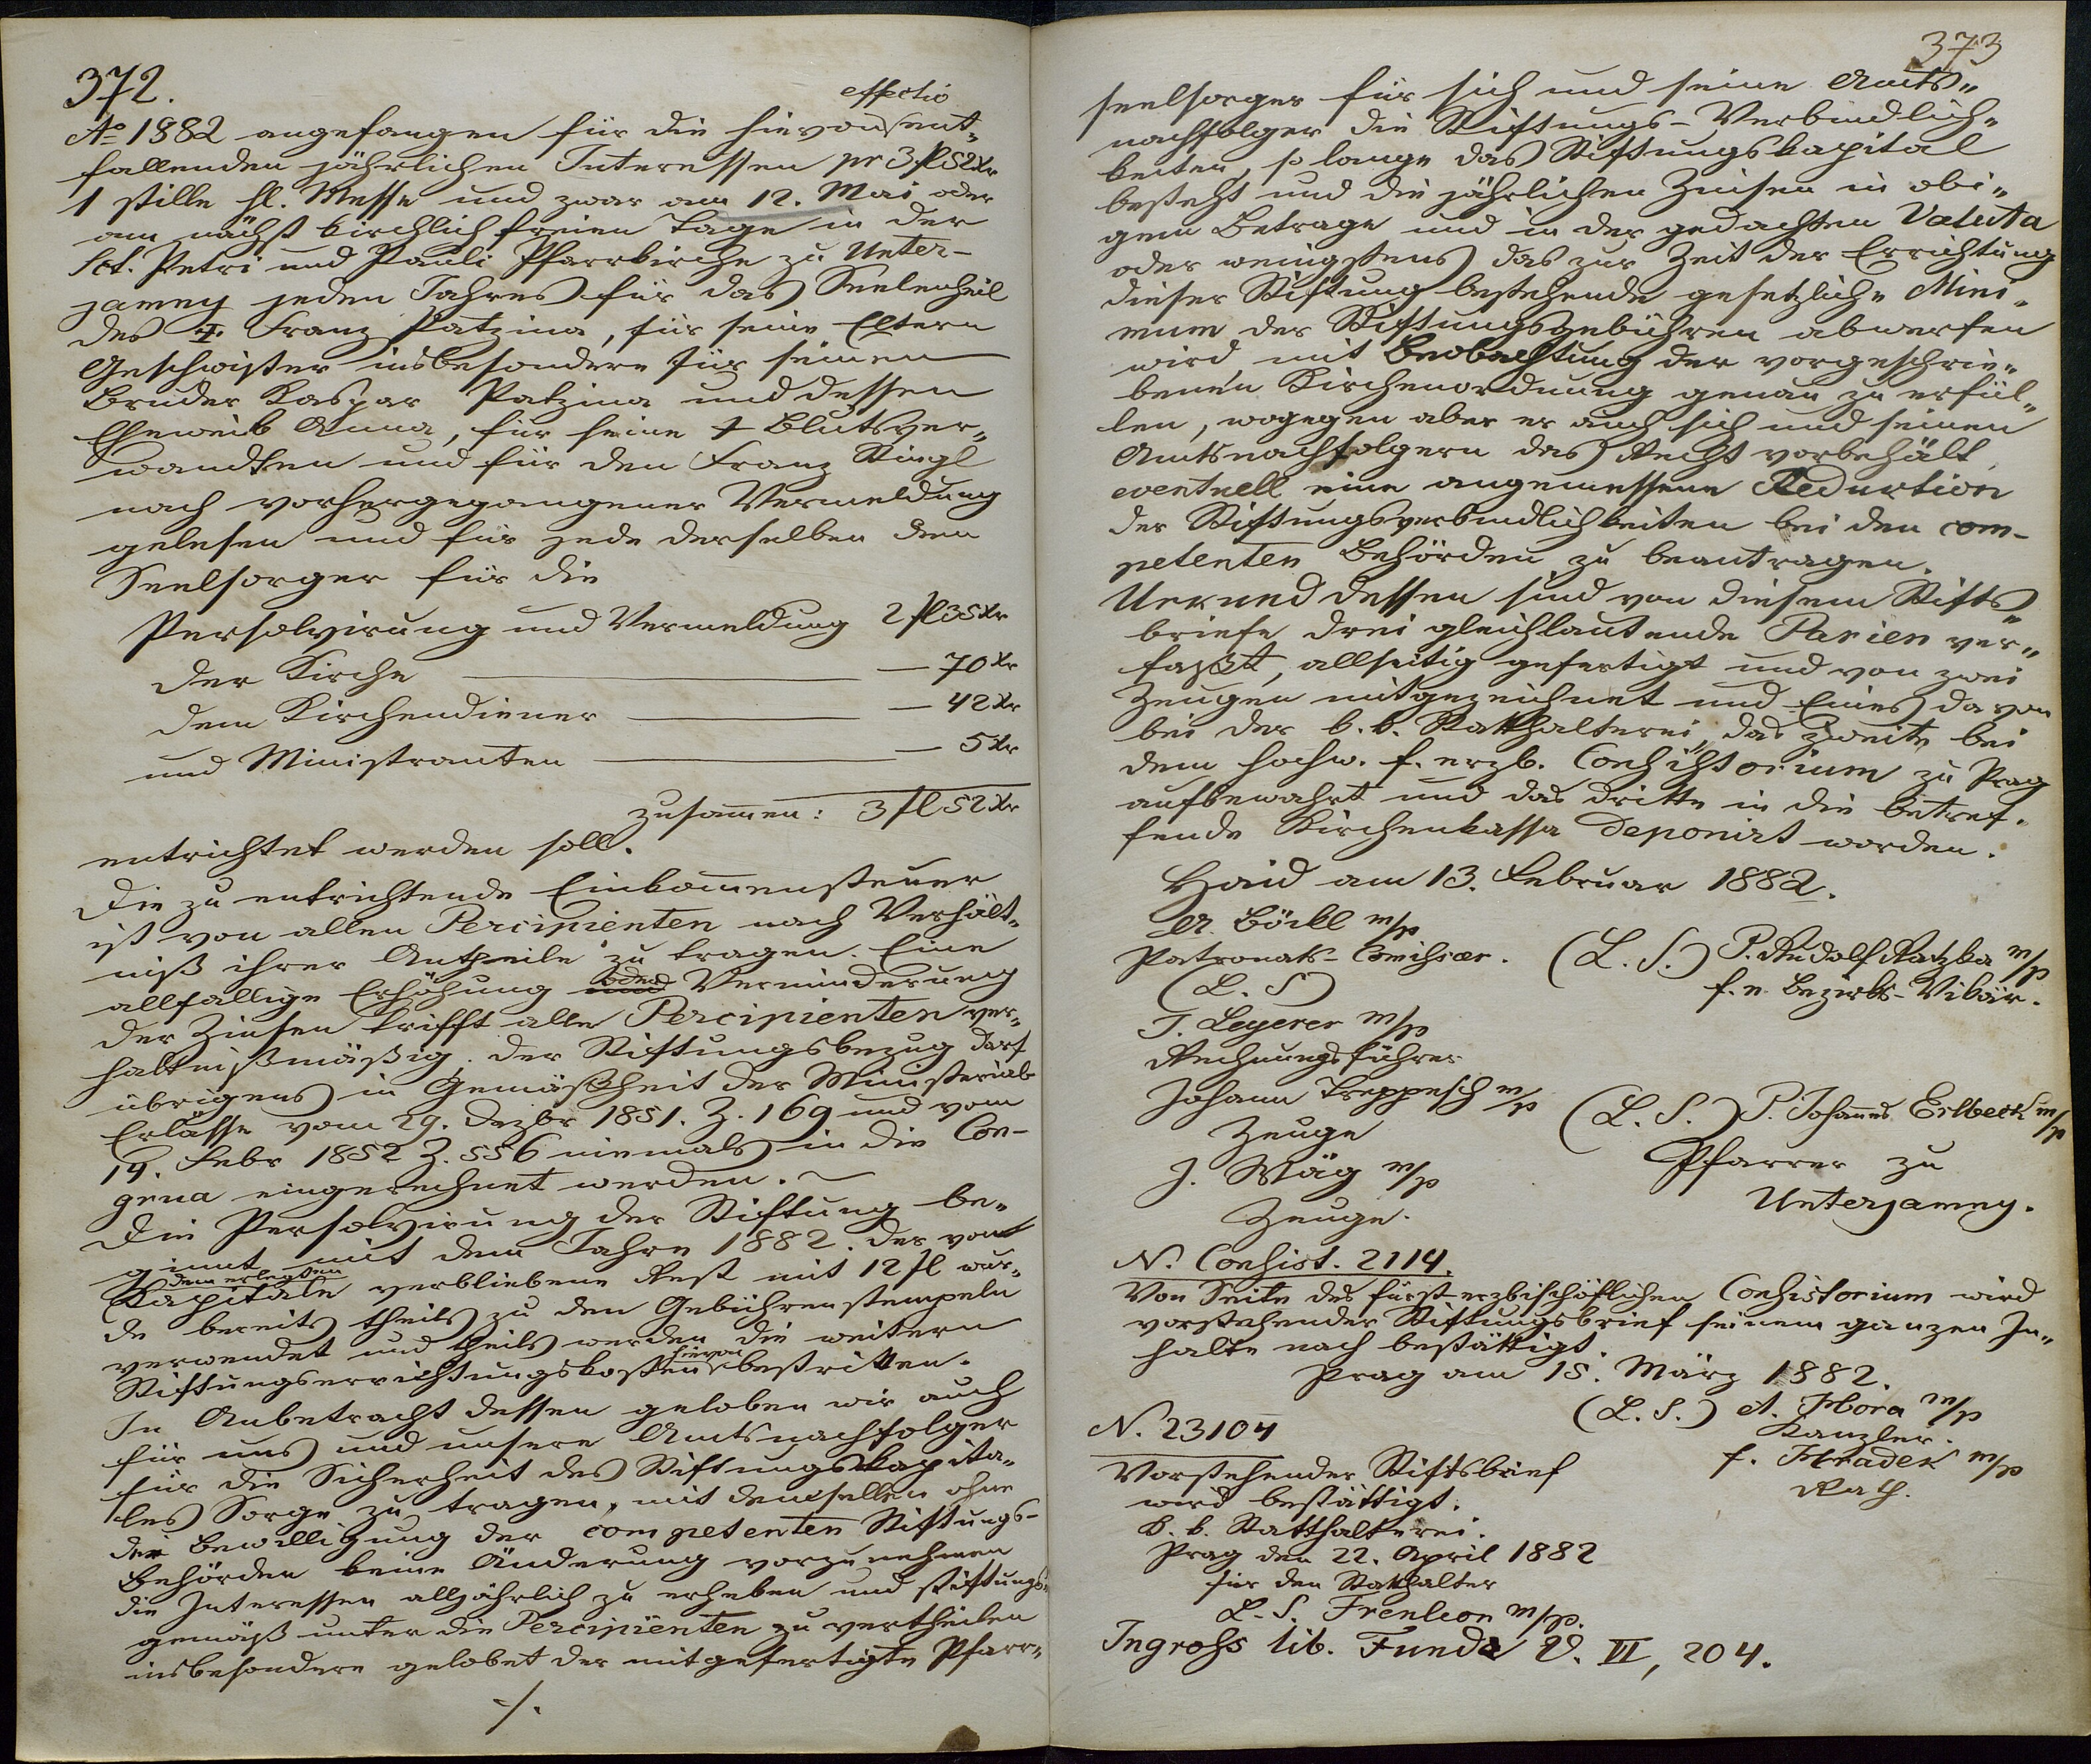 372.
effectiv
Aº 1882 angefangen für die hievon ent-
fallenden jährlichen Interessen pr 3 fl 52 xr
1 stille hl. Messe und zwar am 12. Mai oder
am nächst kirchlich freien Tage in der
Sct. Petri und Pauli Pfarrkirche zu Unter-
jamny jeden Jahres für das Seelenheil
des † Franz Patzina, für seine Eltern
Geschwister insbesondere für seinen
Bruder Kaspar Patzina und dessen
Eheweib Anna, für seine † Blutsver-
wandten und für den Franz Stingl
nach vorhergegangener Vermeldung
gelesen und für jede derselben dem
Seelsorger für die
Persolvirung und Vermeldung 2 fl 35 xr
der Kirche — 70 xr
dem Kirchendiener — 42 xr
und Ministranten — 5 xr
zusamen: 3 fl 52 xr
entrichtet werden soll.
Die zu entrichtende Einkommensteuer
ist von allen Percipienten nach Verhält-
niß ihrer Antheile zu tragen. Eine
allfällige Erhöhung und oder Verminderung
der Zinsen trifft alle Percipienten ver-
hältnißmäßig. Der Stiftungsbezug darf
übrigens in Gemäßheit der Ministerial
Erlässe vom 29. Dezbr 1851. Z. 169 und vom
14. Febr 1852 Z. 556 niemals in die Con-
grua eingerechnet werden.
Die Persolvirung der Stiftung be-
ginnt mit dem Jahre 1882. Der vom
dem erlegten
Kapitale verbliebene Rest mit 12 fl wur-
de bereits theils zu den Gebührenstempeln
verwendet und theils werden die weitern
Stiftungserrichtungskosten hievon bestritten.
In Anbetracht dessen geloben wir auch
für uns und unsere Amtsnachfolger
für die Sicherheit des Stiftungskapita-
les Sorge zu tragen, mit demselben ohne
der Bewilligung der competenten Stiftungs-
behörden keine Änderung vorzunehmen
die Interessen alljährlich zu erheben und stiftungs-
gemäß unter die Percipienten zu vertheilen
insbesondere gelobet der mitgefertigte Pfarr-
./.
373
seelsorger für sich und seine Amts-
nachfolger die Stiftungs-Verbindlich-
keiten, so lange das Stiftungskapital
besteht und die jährlichen Zinsen in obi-
gem Betrage und in der gedachten Valuta
oder wenigstens das zur Zeit der Errichtung
dieser Stiftung bestehende gesetzliche Mini-
mum der Stiftungsgebühren abwerfen
wird mit Beobachtung der vorgeschrie-
benen Kirchenordnung genau zu erfül-
len, wogegen aber er auch sich und seinen
Amtsnachfolgern das Recht vorbehält
eventuell eine angemessene Reduction
der Stiftungsverbindlichkeiten bei den com-
petenten Behörden zu beantragen.
Urkund dessen sind von diesem Stifts-
briefe drei gleichlautende Parien ver-
faßt, allseitig gefertigt und von zwei
Zeugen mitgezeichnet und Eines davon
bei der k. k. Statthalterei, das Zweite bei
dem hochw. f. erzb. Consistorium zu Prag
aufbewahrt und das dritte in die betref-
fende Kirchenkassa deponirt worden.
Haid am 13. Februar 1882.
A. Böckl m/p
Patronats-Comissär. (L. S.) P. Rudolf Ratzka m/p
(L. S) f. e. Bezirks-Vikär.
J. Legerer m/p
Rechnungsführer
Johann Treppesch m/p (L. S.) P. Johannes Erlbeck m/p
Zeuge Pfarrer zu
J. Wäg m/p Unterjamny.
Zeuge.
N. Consist. 2114.
Von Seite des fürst-erzbischöflichen Consistorium wird
vorstehender Stiftungsbrief seinem ganzen In-
halte nach bestättigt.
Prag am 15. März 1882.
(L. S.) A. Hora m/p
N. 23104 Kanzler.
Vorstehender Stiftsbrief f. Hradek m/p
wird bestättigt. Rath.
K. k. Statthalterei.
Prag den 22. April 1882
für den Statthalter
L. S. Frenleon m/p.
Ingrohs lib. Funda V. VI, 204.